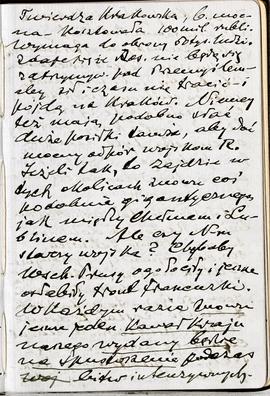 Twierdza Krakowska, b. moc-
na. Kosztowała 100 mil. rubli.
Wymaga do obrony 60 tys. ludzi,
zdaje się że Ros. nie będą się
zatrzymyw. pod Przemyślem,
aby i czasu nie tracić i
pójdą na Kraków. Niemcy
też mają podobno stać
duże posiłki zawsze, aby dać
mocny odpór wojskom R.
Jeżeli tak, to zajdzie w
tych okolicach znowu coś
podobnie gigantycznego,
jak między Chełmem i Lu-
blinem. Ale czy Niem.
starczy wojska? Chybaby
Wsch. Prusy ogołocili i
osłabili front francuski.
W każdym razie znowu
jeden kawał kraju
naszego wydany będzie
na spustoszenie podczas
bitw intenzywnych.